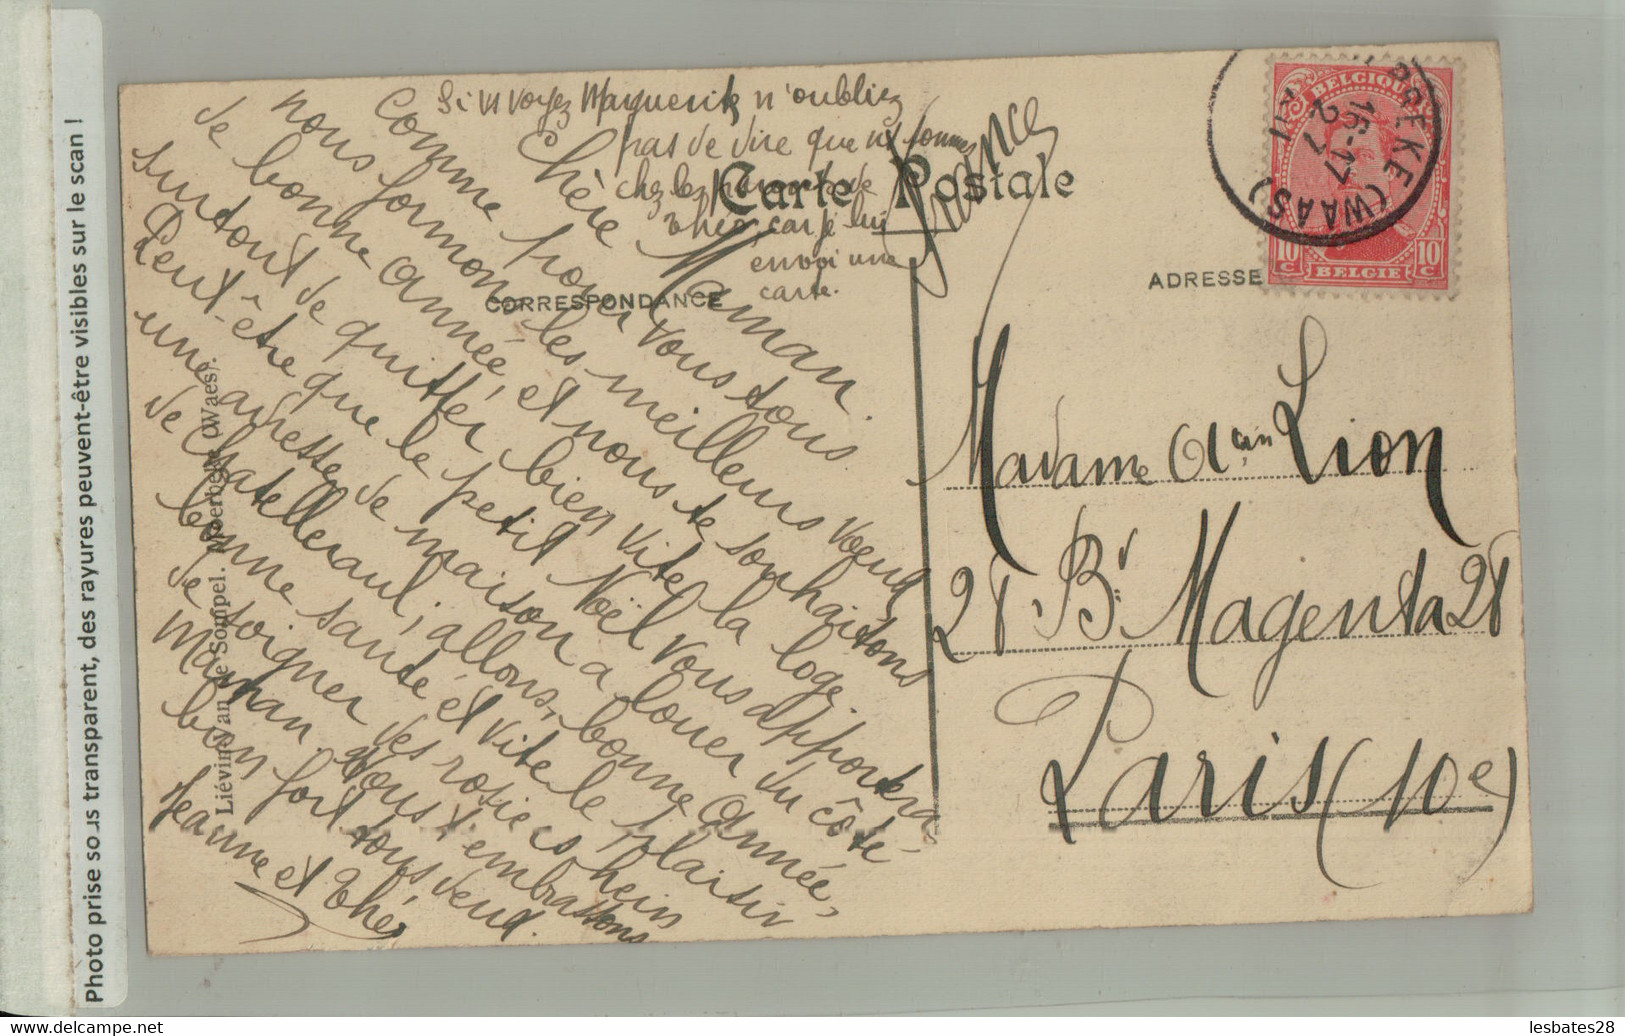 Photo prise sous transparent, des rayures peuvent-être visibles sur le scan !
Si vs voyez Marguerite n'oubliez
pas de dire que ns sommes
chez les parents de
Théo, car je lui
envoi une
carte.
Carte Postale
France
CORRESPONDANCE
ADRESSE
BELGIQUE
10 C
10 C
BELGIE
(WAAS)
16-17
Chère Maman.
Comme pour vous tous
nous formons les meilleurs vœux
de bonne année, et nous te souhaitons
surtout de quitter bien vite la loge.
Peut-être que le petit Noël vous apportera
une adresse de maison à louer du côté
de Chatelleraul; allons, bonne année,
bonne santé et vite le plaisir
de soigner des rosiers hein
Maman. Nous t'embrassons
bien fort tous deux.
Jeanne et Théo
Madame Lion
28 Bd Magenta 28
Paris (10e)
Liévin Van de Sompel. (Waes).
lesbates28